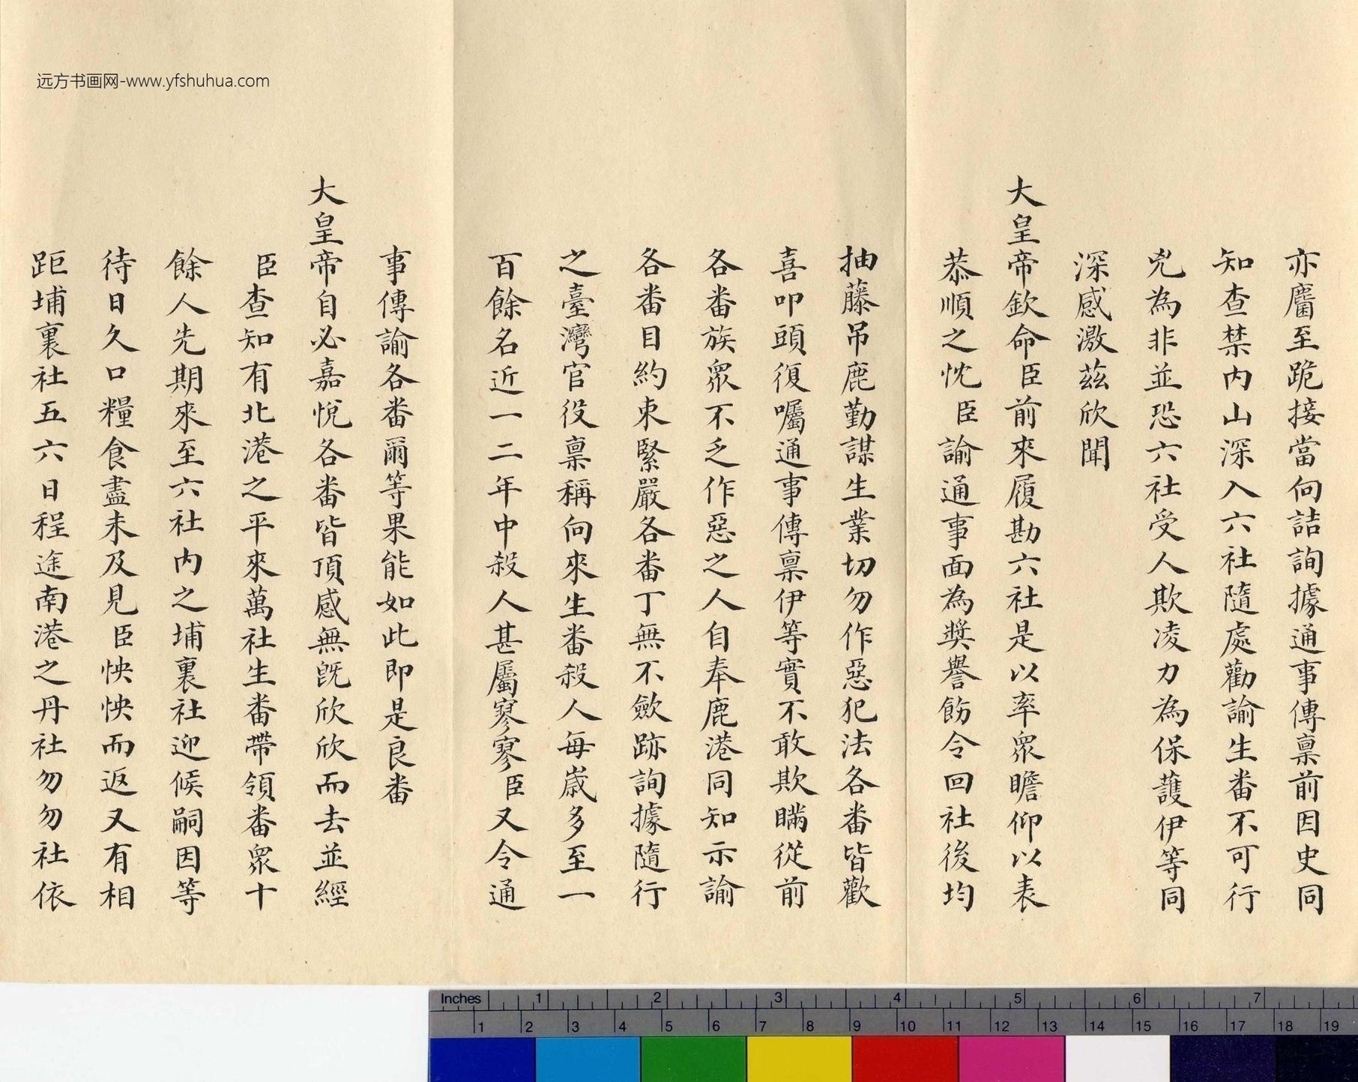 远方书画网-www.yfshuhua.com
亦麕至跪接當向詰詢據通事傳稟前因史同
知查禁內山深入六社隨處勸諭生番不可行
兇為非並恐六社受人欺凌力為保護伊等同
深感激茲欣聞
大皇帝欽命臣前來履勘六社是以率眾瞻仰以表
恭順之忱臣諭通事面為獎譽飭令回社後均
抽藤吊鹿勤謀生業切勿作惡犯法各番皆歡
喜叩頭復囑通事傳稟伊等實不敢欺瞞從前
各番族眾不乏作惡之人自奉鹿港同知示諭
各番目約束緊嚴各番丁無不斂跡詢據隨行
之臺灣官役稟稱向來生番殺人每歲多至一
百餘名近一二年中殺人甚屬寥寥臣又令通
事傳諭各番爾等果能如此即是良番
大皇帝自必嘉悅各番皆頂感無既欣欣而去並經
臣查知有北港之平來萬社生番帶領番眾十
餘人先期來至六社內之埔裏社迎候嗣因等
待日久口糧食盡未及見臣怏怏而返又有相
距埔裏社五六日程途南港之丹社勿勿社依
Inches 1 2 3 4 5 6 7
1 2 3 4 5 6 7 8 9 10 11 12 13 14 15 16 17 18 19